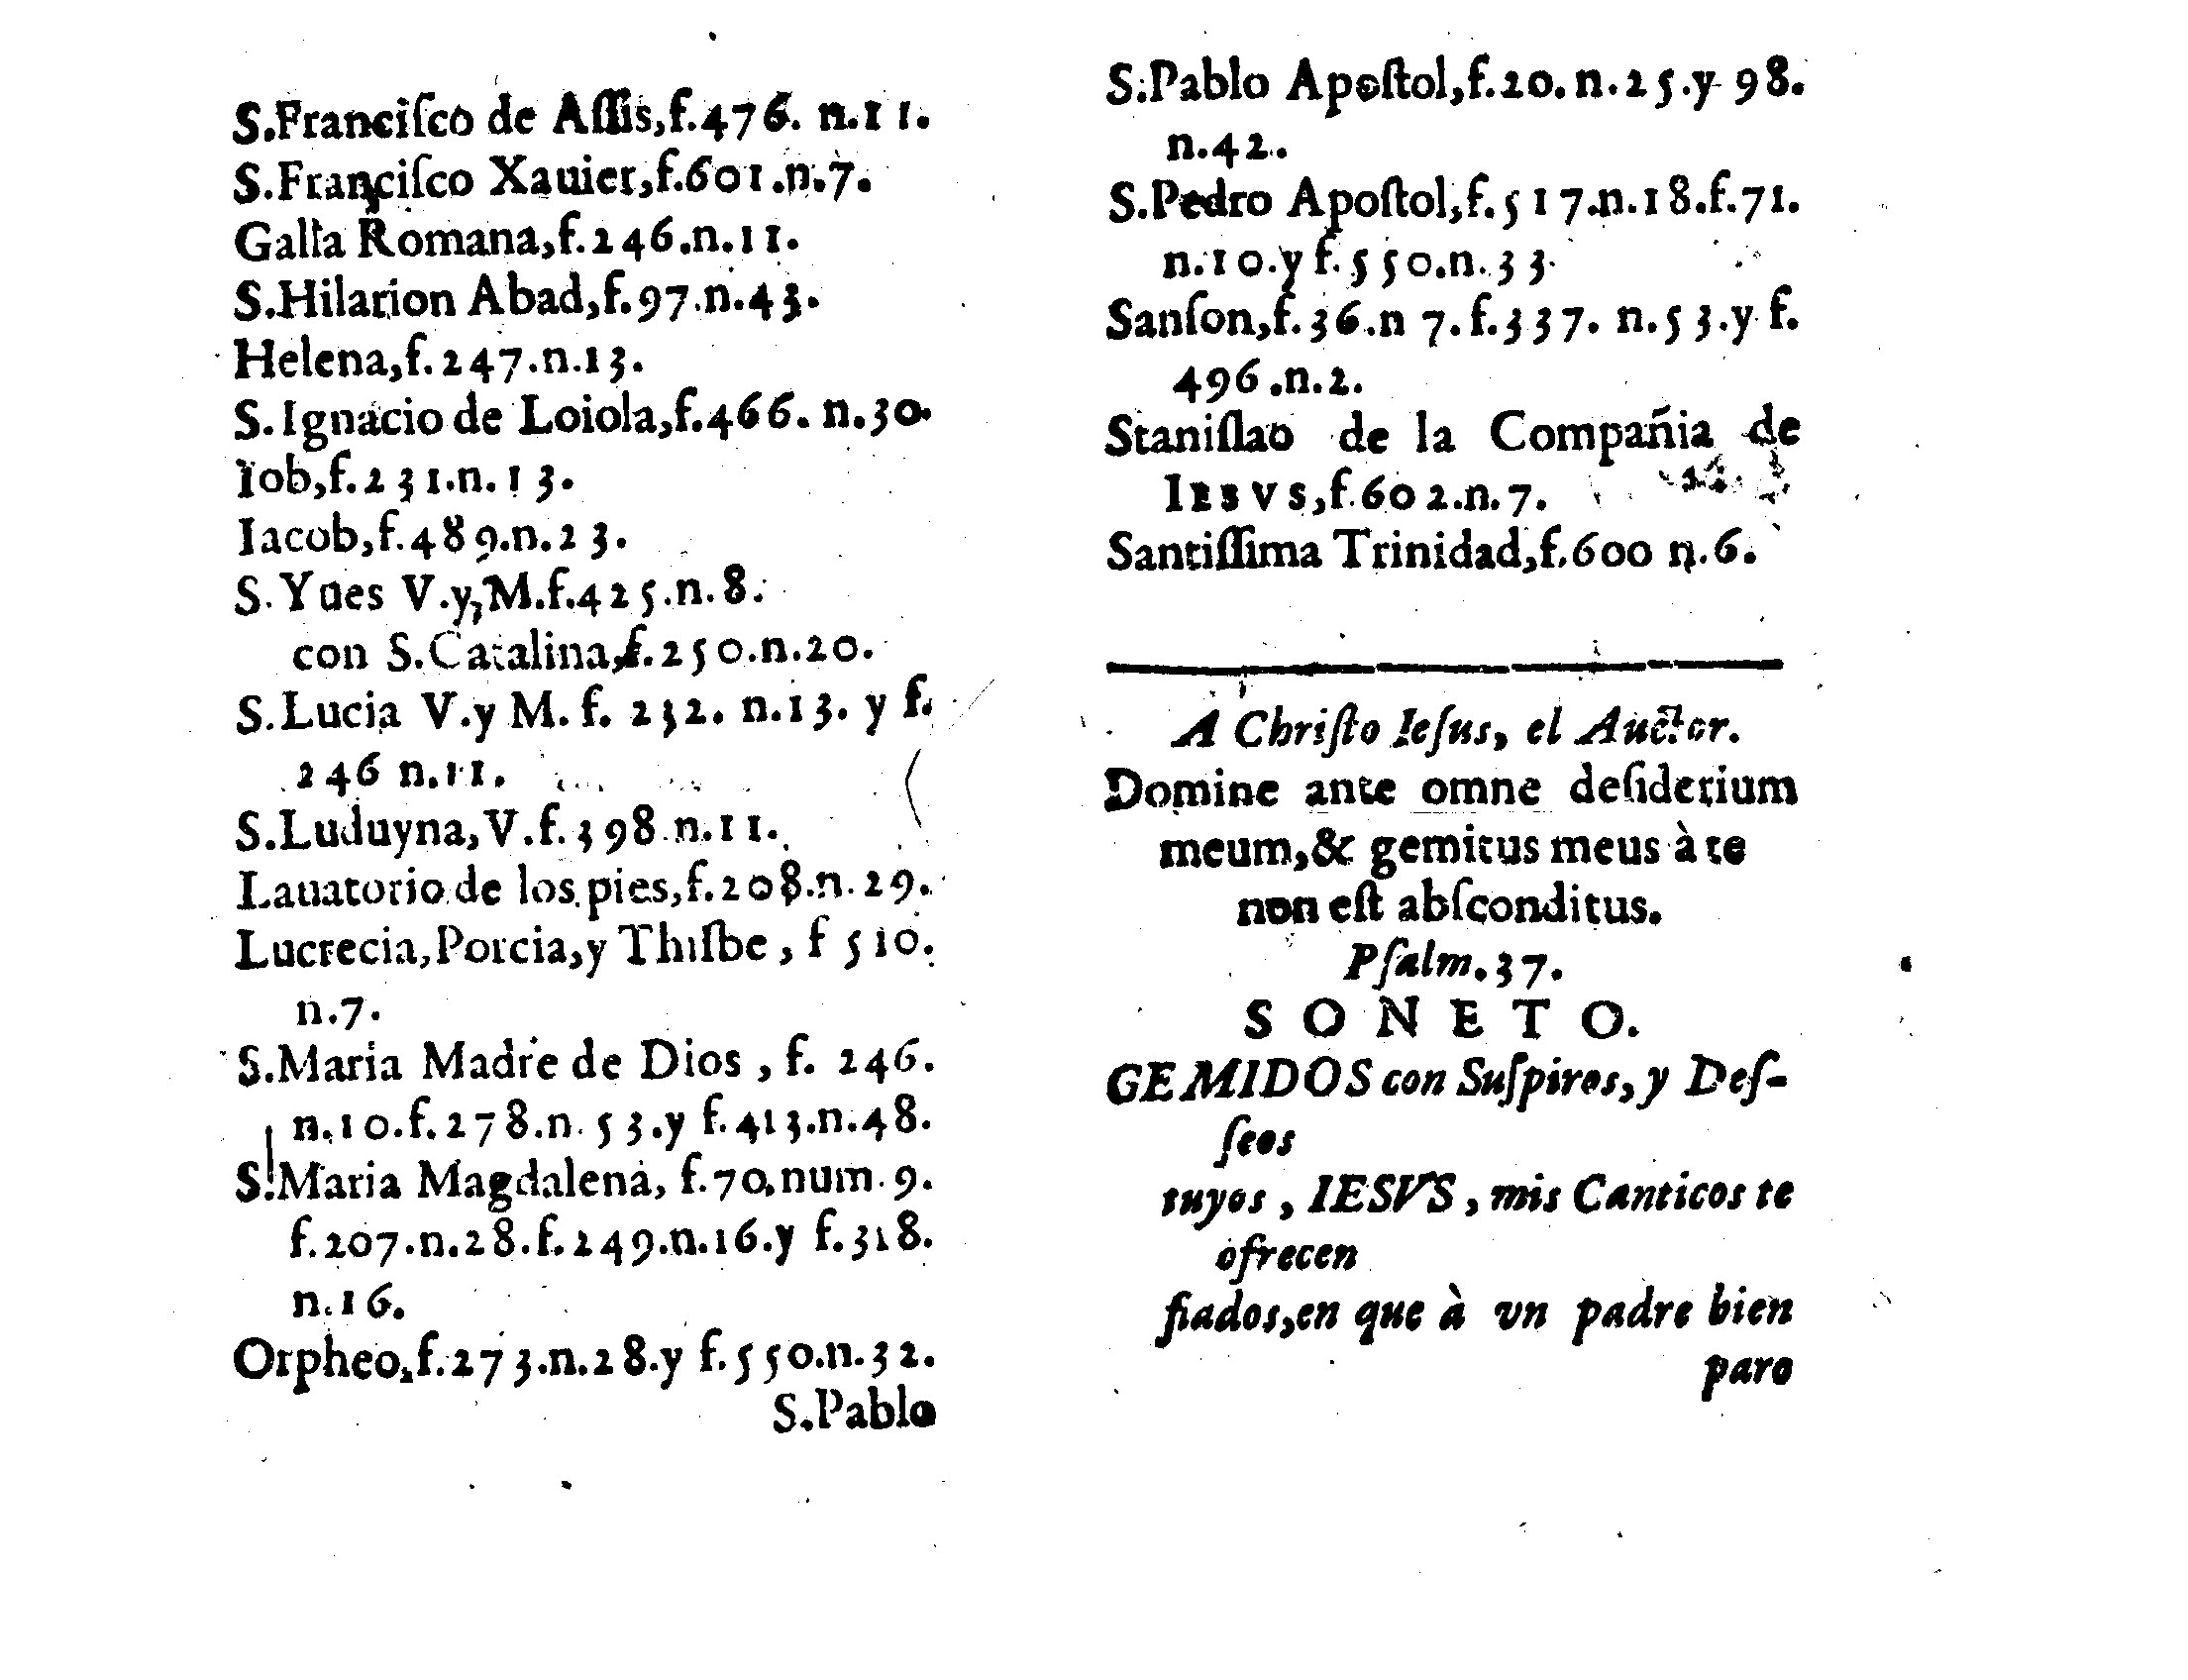 S.Franciſco de Aſſis,f.476. n.11.
S.Franciſco Xauier,f.601.n.7.
Galla Romana,f.246.n.11.
S.Hilarion Abad,f.97.n.43.
Helena,f.247.n.13.
S.Ignacio de Loiola,f.466. n.30.
Iob,f.231.n.13.
Iacob,f.489.n.23.
S.Yues V.y M.f.425.n.8.
con S.Catalina,f.250.n.20.
S.Lucia V.y M. f. 232. n.13. y f.
246 n.11.
S.Luduyna,V.f.398 n.11.
Lauatorio de los pies,f.208.n.29.
Lucrecia,Porcia,y Thiſbe , f 510.
n.7.
S.Maria Madre de Dios , f. 246.
n.10.f.278.n.53.y f.413.n.48.
S.Maria Magdalena, f.70.num.9.
f.207.n.28.f.249.n.16.y f.318.
n.16.
Orpheo,f.273.n.28.y f.550.n.32.
S.Pablo
S.Pablo Apoſtol,f.20.n.25.y 98.
n.42.
S.Pedro Apoſtol,f.517.n.18.f.71.
n.10.y f.550.n.33.
Sanſon,f.36.n 7.f.337. n.53.y f.
496.n.2.
Staniſlao de la Compañia de
IESVS,f.602.n.7.
Santiſſima Trinidad,f.600 n.6.
A Chriſto Ieſus, el Auctor.
Domine ante omne deſiderium
meum,& gemitus meus à te
non eſt abſconditus.
Pſalm.37.
SONETO.
GEMIDOS con Suſpiros, y Deſ-
ſeos
tuyos , IESVS , mis Canticos te
ofrecen
fiados,en que à vn padre bien
paro